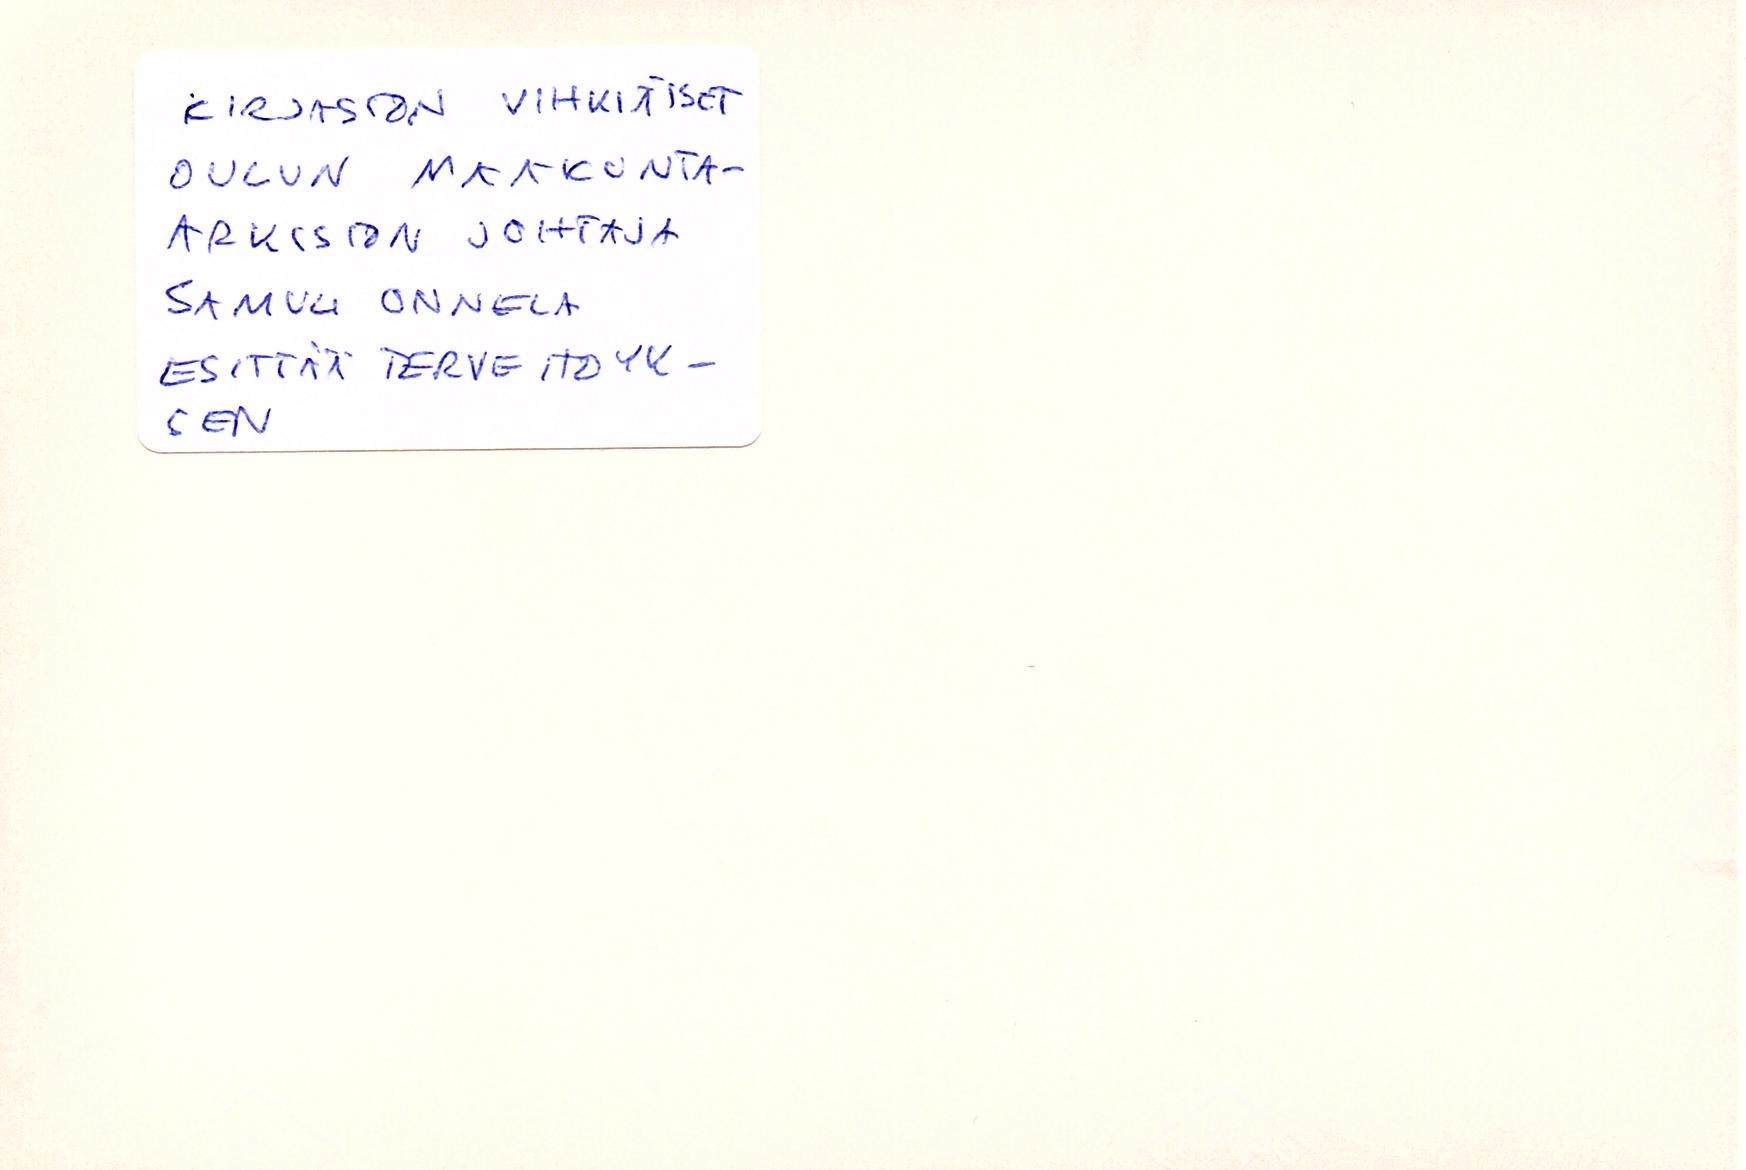 KIRJASTON VIHKIÄISET
OULUN MAAKUNTA-
ARKISTON JOHTAJA
SAMULI ONNELA
ESITTÄÄ TERVEHDYK-
SEN